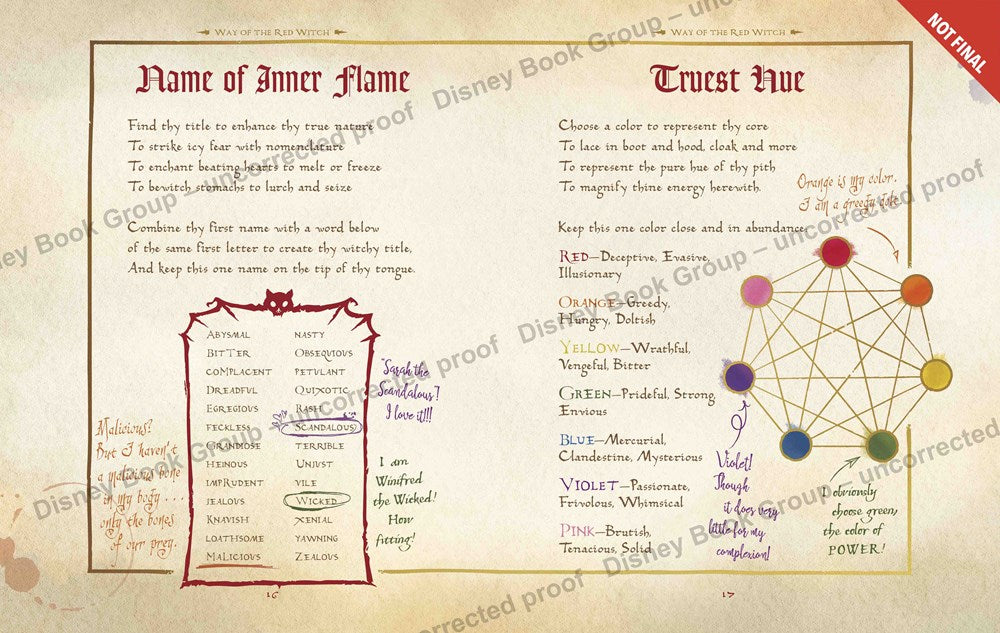 Way of the Red Witch
Name of Inner Flame
Find thy title to enhance thy true nature
To strike icy fear with nomenclature
To enchant beating hearts to melt or freeze
To bewitch stomachs to lurch and seize
Combine thy first name with a word below
of the same first letter to create thy witchy title,
And keep this one name on the tip of thy tongue.
Abysmal
Bitter
Complacent
Dreadful
Egregious
Feckless
Grandiose
Heinous
Imprudent
Jealous
Knavish
Loathsome
Malicious
Nasty
Obsequious
Petulant
Quixotic
Rash
Scandalous
Terrible
Unjust
Vile
Wicked
Xenial
Yawning
Zealous
Malicious?
But I haven't
a malicious bone
in my body . . .
only the bones
of our prey.
"Sarah the
Scandalous"?
I love it!!!
I am
Winifred
the Wicked!
How
fitting!
16
Way of the Red Witch
Truest Hue
Choose a color to represent thy core
To lace in boot and hood, cloak and more
To represent the pure hue of thy pith
To magnify thine energy herewith.
Keep this one color close and in abundance.
Red—Deceptive, Evasive,
Illusionary
Orange—Greedy,
Hungry, Doltish
Yellow—Wrathful,
Vengeful, Bitter
Green—Prideful, Strong,
Envious
Blue—Mercurial,
Clandestine, Mysterious
Violet—Passionate,
Frivolous, Whimsical
Pink—Brutish,
Tenacious, Solid
Orange is my color.
I am a greedy dolt.
Violet!
Though
it does very
little for my
complexion!
I obviously
choose green,
the color of
POWER!
17
NOT FINAL
Disney Book Group – uncorrected proof
Disney Book Group – uncorrected proof
Disney Book Group – uncorrected proof
Disney Book Group – uncorrected proof
Disney Book Group – uncorrected
uncorrected proof